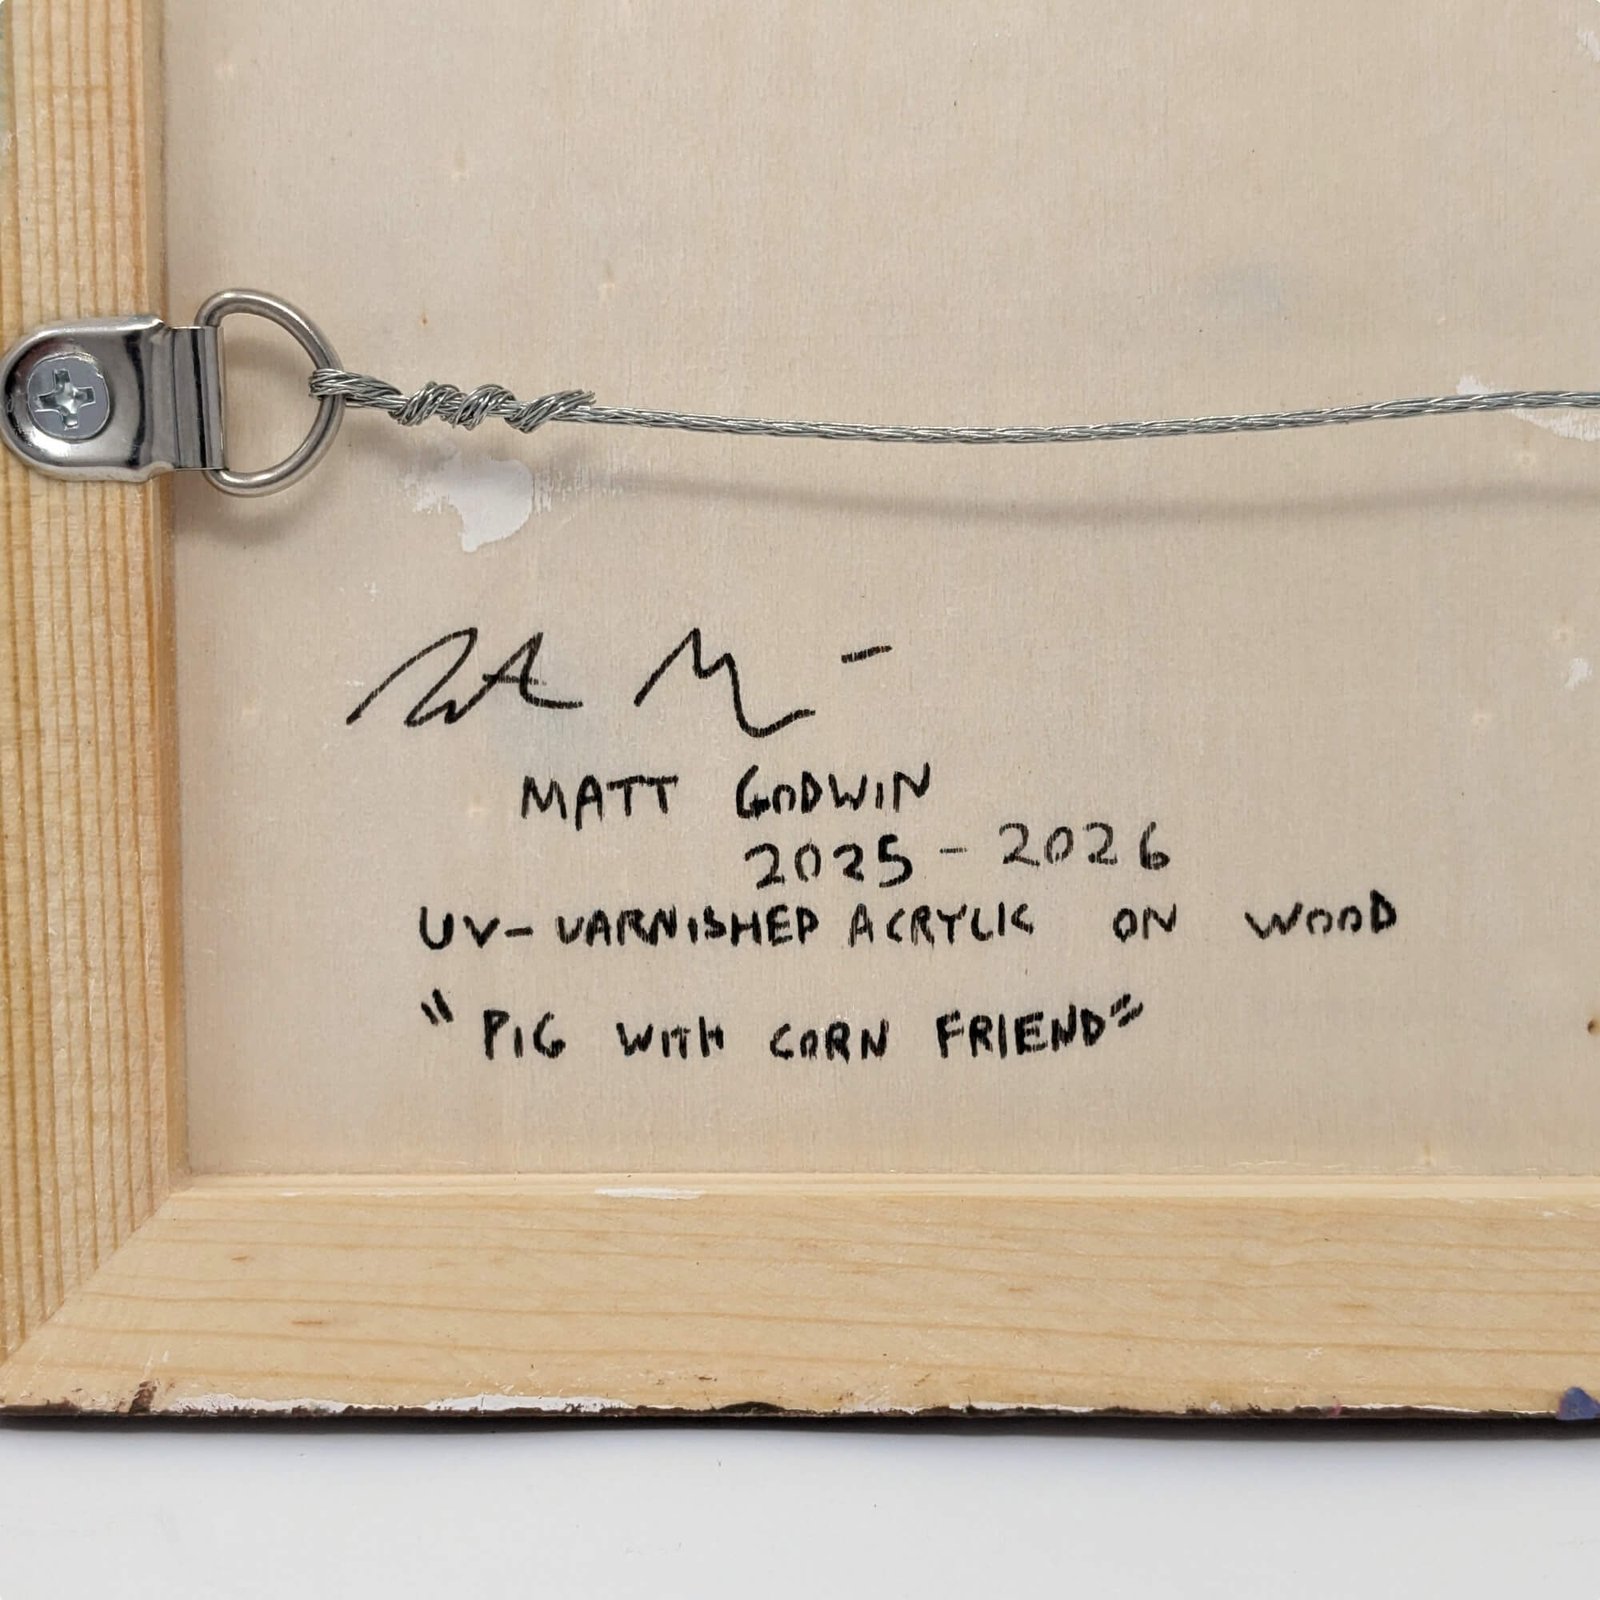 MATT GODWIN
2025 - 2026
UV-VARNISHED ACRYLIC ON WOOD
"PIG WITH CORN FRIEND"